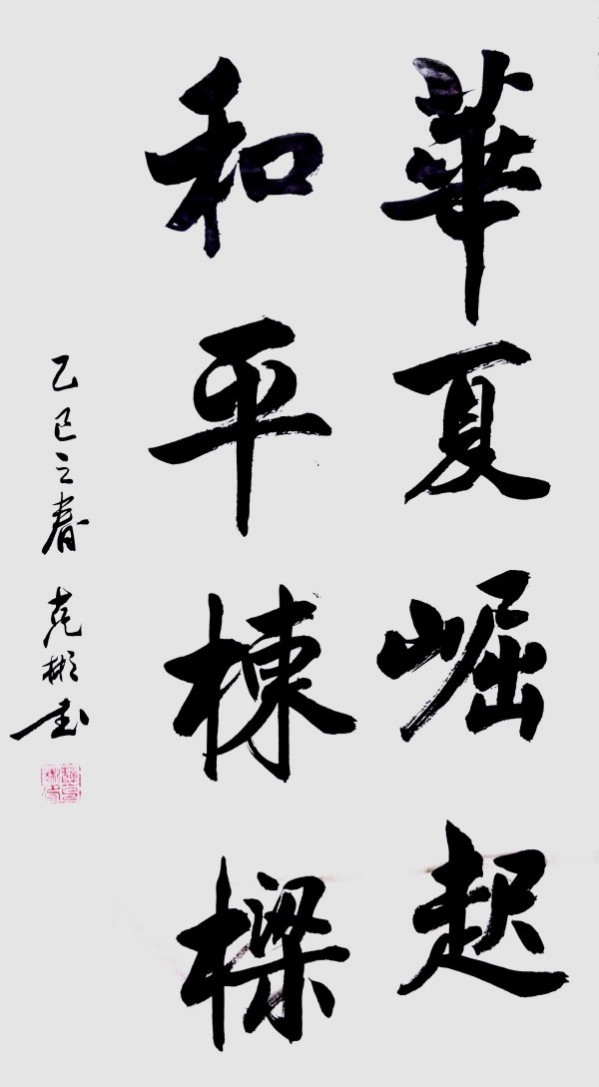 華夏崛起
和平棟樑
乙巳之春 克彬書